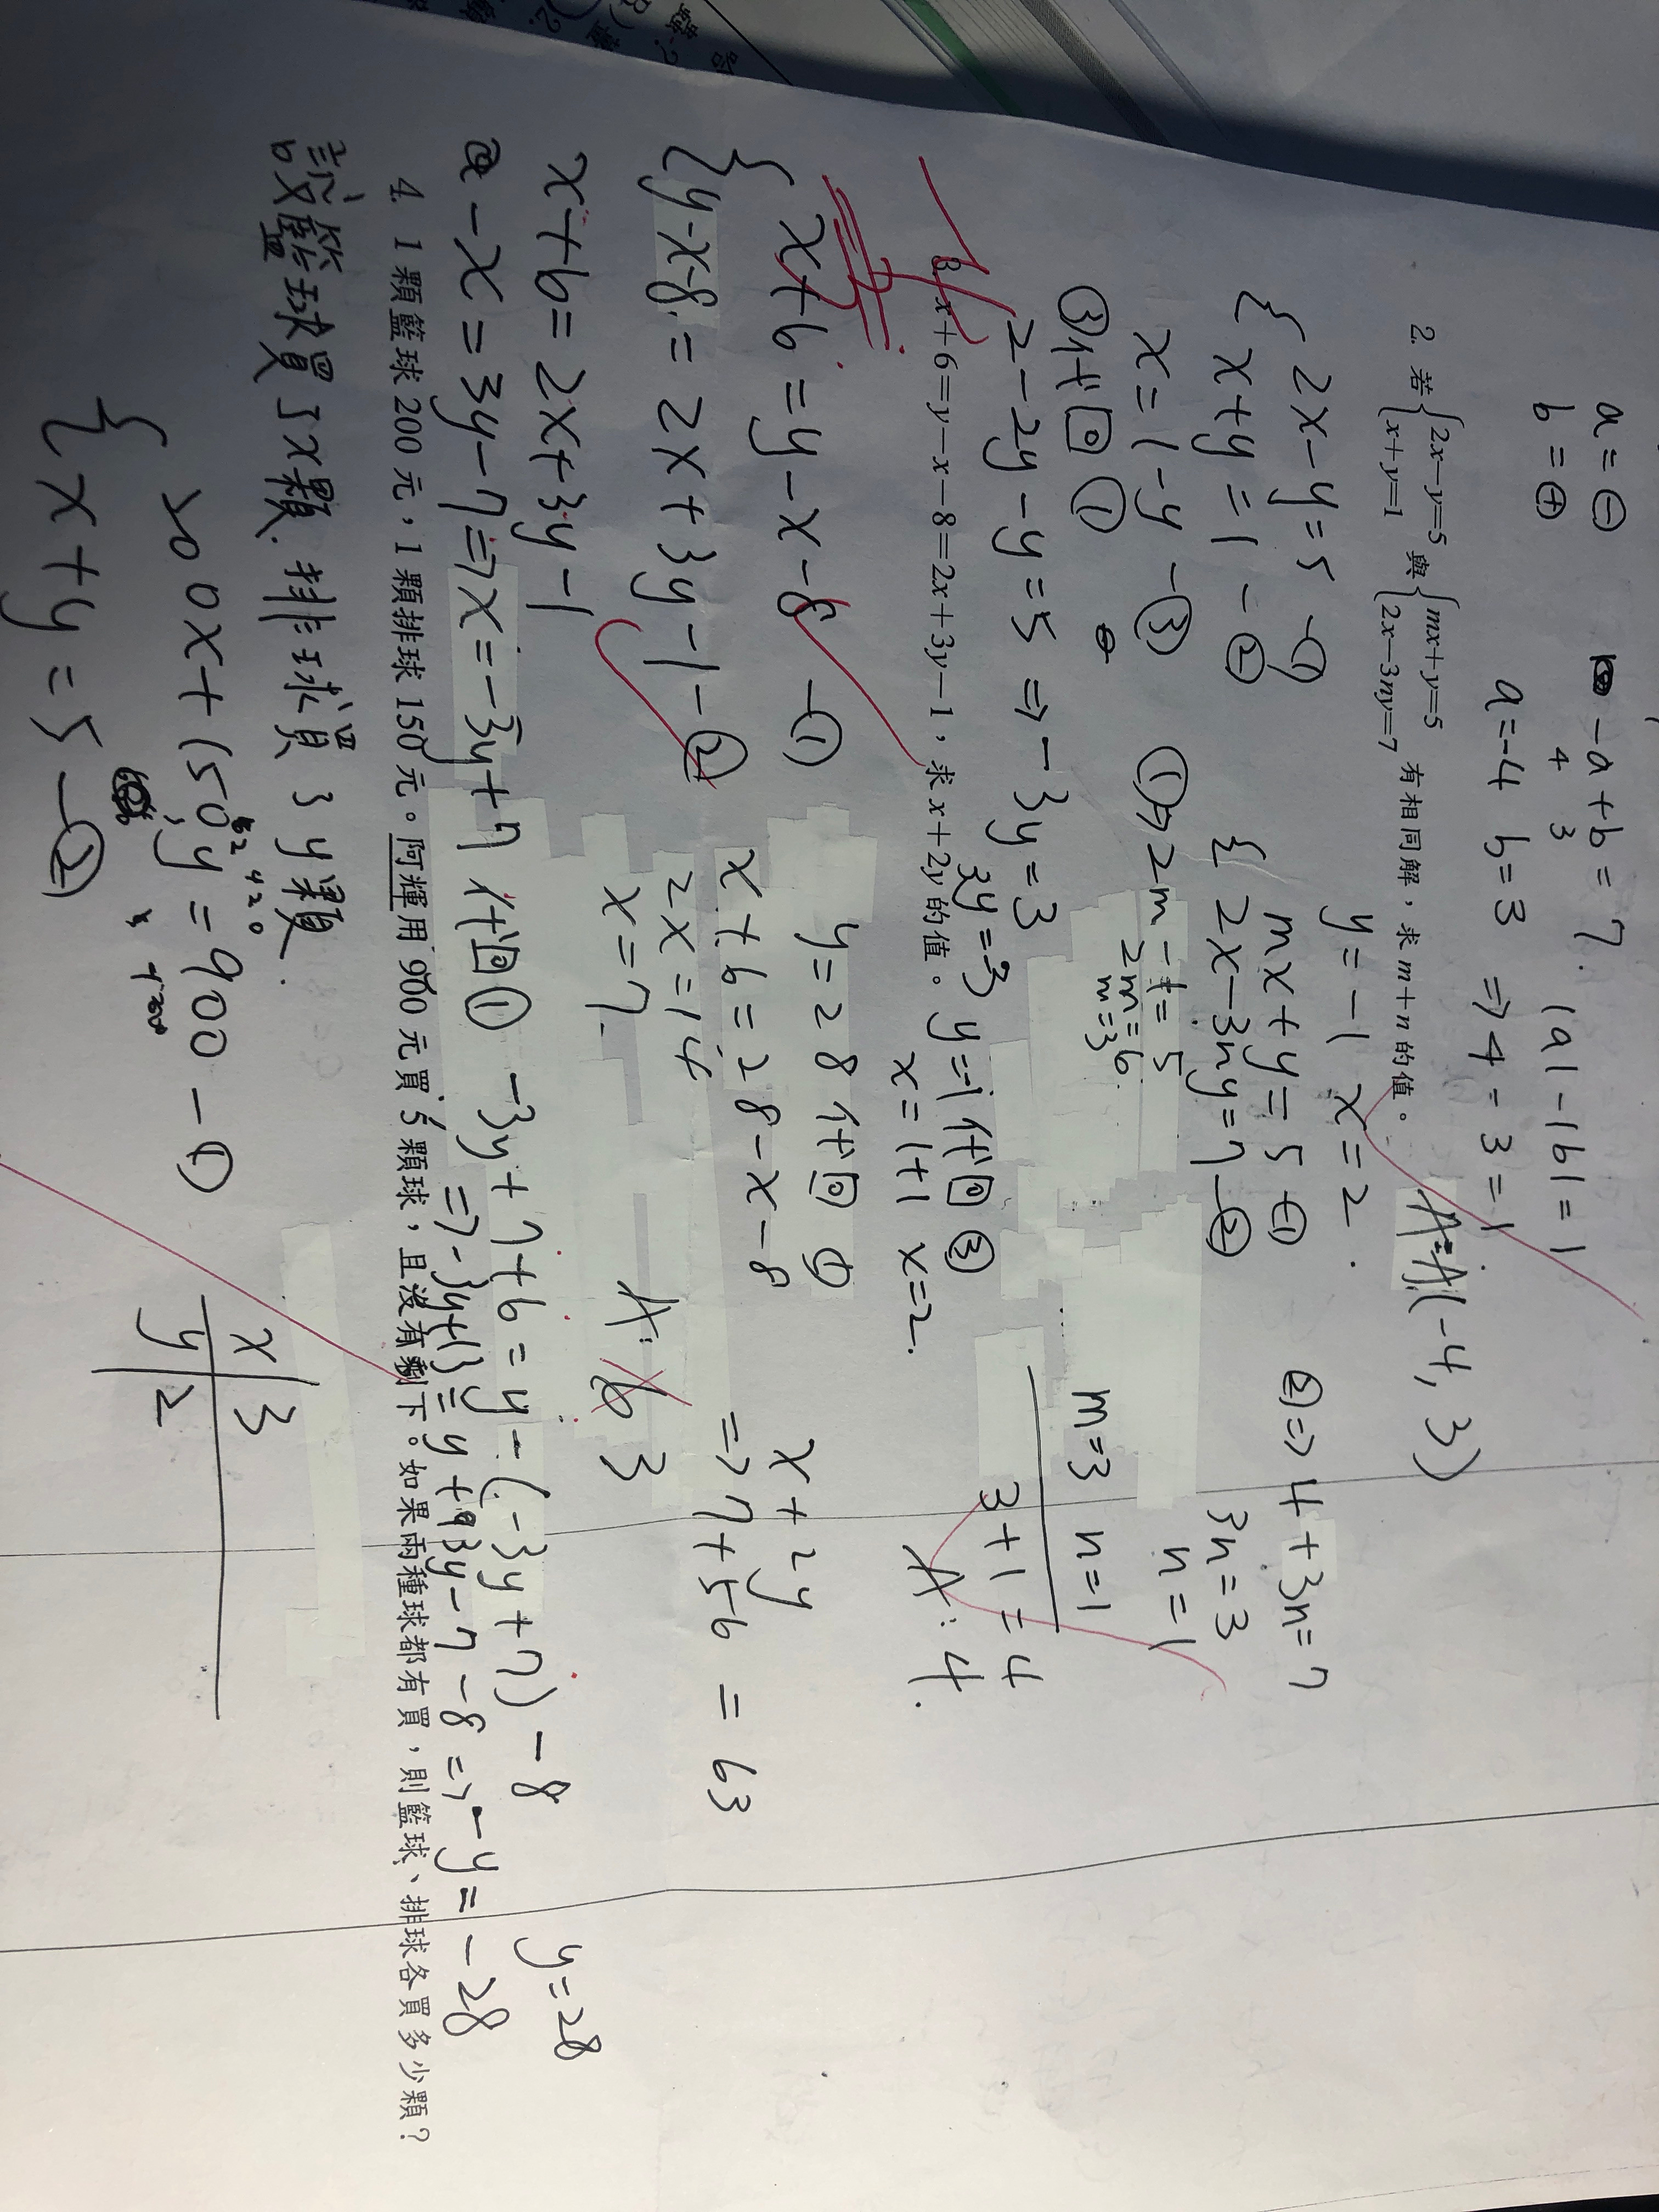 a=⊖
b=⊕
-a+b=7.
4 3
|a|-|b|=1
a=-4 b=3 ⇒4-3=1
A:(-4,3)
2. 若{2x-y=5 x+y=1 與{mx+y=5 2x-3ny=7 有相同解，求m+n的值。
{2x-y=5 -①
x+y=1 -②
x=1-y -③
③代回①
2-2y-y=5 ⇒ -3y=3
3y=-3 y=-1代回③
x=1+1 x=2.
y=-1 x=2.
{mx+y=5 -①
2x-3ny=7 -②
①⇒2m-1=5
2m=6
m=3
②⇒4+3n=7
3n=3
n=1
m=3 n=1
3+1=4
A:4.
3. x+6=y-x-8=2x+3y-1，求x+2y的值。
{x+6=y-x-8 -①
y-x-8=2x+3y-1 -②
x+6=2x+3y-1
-x=3y-7⇒x=-3y+7代回① -3y+7+6=y-(-3y+7)-8
⇒-3y+13=y+3y-7-8⇒-y=-28
y=28
y=28代回①
x+6=28-x-8
2x=14
x=7.
x+2y
⇒7+56=63
A: 63
4. 1顆籃球200元，1顆排球150元。阿輝用900元買5顆球，且沒有剩下。如果兩種球都有買，則籃球、排球各買多少顆？
設籃球買了x顆.排球買了y顆.
{200x+150y=900 -①
x+y=5 -②
x 3
y 2